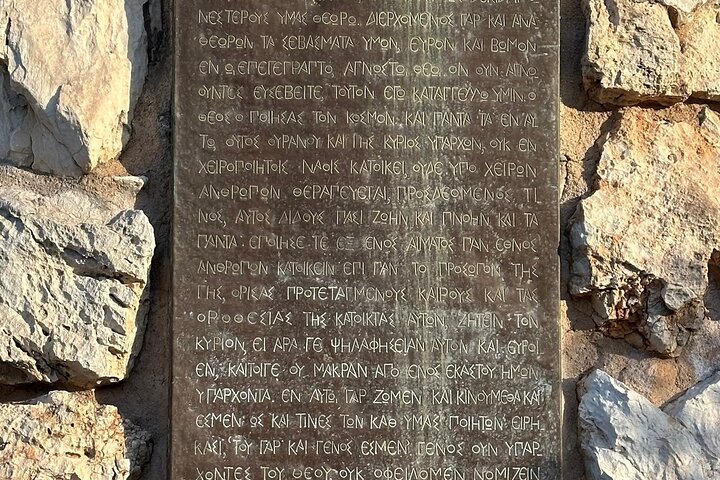 ΝΕΣΤΕΡΟΥΣ ΥΜΑΣ ΘΕΩΡΩ. ΔΙΕΡΧΟΜΕΝΟΣ ΓΑΡ ΚΑΙ ΑΝΑ
ΘΕΩΡΩΝ ΤΑ ΣΕΒΑΣΜΑΤΑ ΥΜΩΝ, ΕΥΡΟΝ ΚΑΙ ΒΩΜΟΝ
ΕΝ Ω ΕΠΕΓΕΓΡΑΠΤΟ, ΑΓΝΩΣΤΩ ΘΕΩ. ΟΝ ΟΥΝ ΑΓΝΟ
ΟΥΝΤΕΣ ΕΥΣΕΒΕΙΤΕ, ΤΟΥΤΟΝ ΕΓΩ ΚΑΤΑΓΓΕΛΛΩ ΥΜΙΝ. Ο
ΘΕΟΣ Ο ΠΟΙΗΣΑΣ ΤΟΝ ΚΟΣΜΟΝ ΚΑΙ ΠΑΝΤΑ ΤΑ ΕΝ ΑΥ
ΤΩ, ΟΥΤΟΣ ΟΥΡΑΝΟΥ ΚΑΙ ΓΗΣ ΚΥΡΙΟΣ ΥΠΑΡΧΩΝ, ΟΥΚ ΕΝ
ΧΕΙΡΟΠΟΙΗΤΟΙΣ ΝΑΟΙΣ ΚΑΤΟΙΚΕΙ, ΟΥΔΕ ΥΠΟ ΧΕΙΡΩΝ
ΑΝΘΡΩΠΩΝ ΘΕΡΑΠΕΥΕΤΑΙ, ΠΡΟΣΔΕΟΜΕΝΟΣ ΤΙ
ΝΟΣ, ΑΥΤΟΣ ΔΙΔΟΥΣ ΠΑΣΙ ΖΩΗΝ ΚΑΙ ΠΝΟΗΝ ΚΑΙ ΤΑ
ΠΑΝΤΑ· ΕΠΟΙΗΣΕ ΤΕ ΕΞ ΕΝΟΣ ΑΙΜΑΤΟΣ ΠΑΝ ΕΘΝΟΣ
ΑΝΘΡΩΠΩΝ ΚΑΤΟΙΚΕΙΝ ΕΠΙ ΠΑΝ ΤΟ ΠΡΟΣΩΠΟΝ ΤΗΣ
ΓΗΣ, ΟΡΙΣΑΣ ΠΡΟΤΕΤΑΓΜΕΝΟΥΣ ΚΑΙΡΟΥΣ ΚΑΙ ΤΑΣ
ΟΡΟΘΕΣΙΑΣ ΤΗΣ ΚΑΤΟΙΚΙΑΣ ΑΥΤΩΝ, ΖΗΤΕΙΝ ΤΟΝ
ΚΥΡΙΟΝ, ΕΙ ΑΡΑ ΓΕ ΨΗΛΑΦΗΣΕΙΑΝ ΑΥΤΟΝ ΚΑΙ ΕΥΡΟΙ
ΕΝ, ΚΑΙΤΟΙΓΕ ΟΥ ΜΑΚΡΑΝ ΑΠΟ ΕΝΟΣ ΕΚΑΣΤΟΥ ΗΜΩΝ
ΥΠΑΡΧΟΝΤΑ. ΕΝ ΑΥΤΩ ΓΑΡ ΖΩΜΕΝ ΚΑΙ ΚΙΝΟΥΜΕΘΑ ΚΑΙ
ΕΣΜΕΝ· ΩΣ ΚΑΙ ΤΙΝΕΣ ΤΩΝ ΚΑΘ ΥΜΑΣ ΠΟΙΗΤΩΝ ΕΙΡΗ
ΚΑΣΙ, ΤΟΥ ΓΑΡ ΚΑΙ ΓΕΝΟΣ ΕΣΜΕΝ. ΓΕΝΟΣ ΟΥΝ ΥΠΑΡ
ΧΟΝΤΕΣ ΤΟΥ ΘΕΟΥ, ΟΥΚ ΟΦΕΙΛΟΜΕΝ ΝΟΜΙΖΕΙΝ